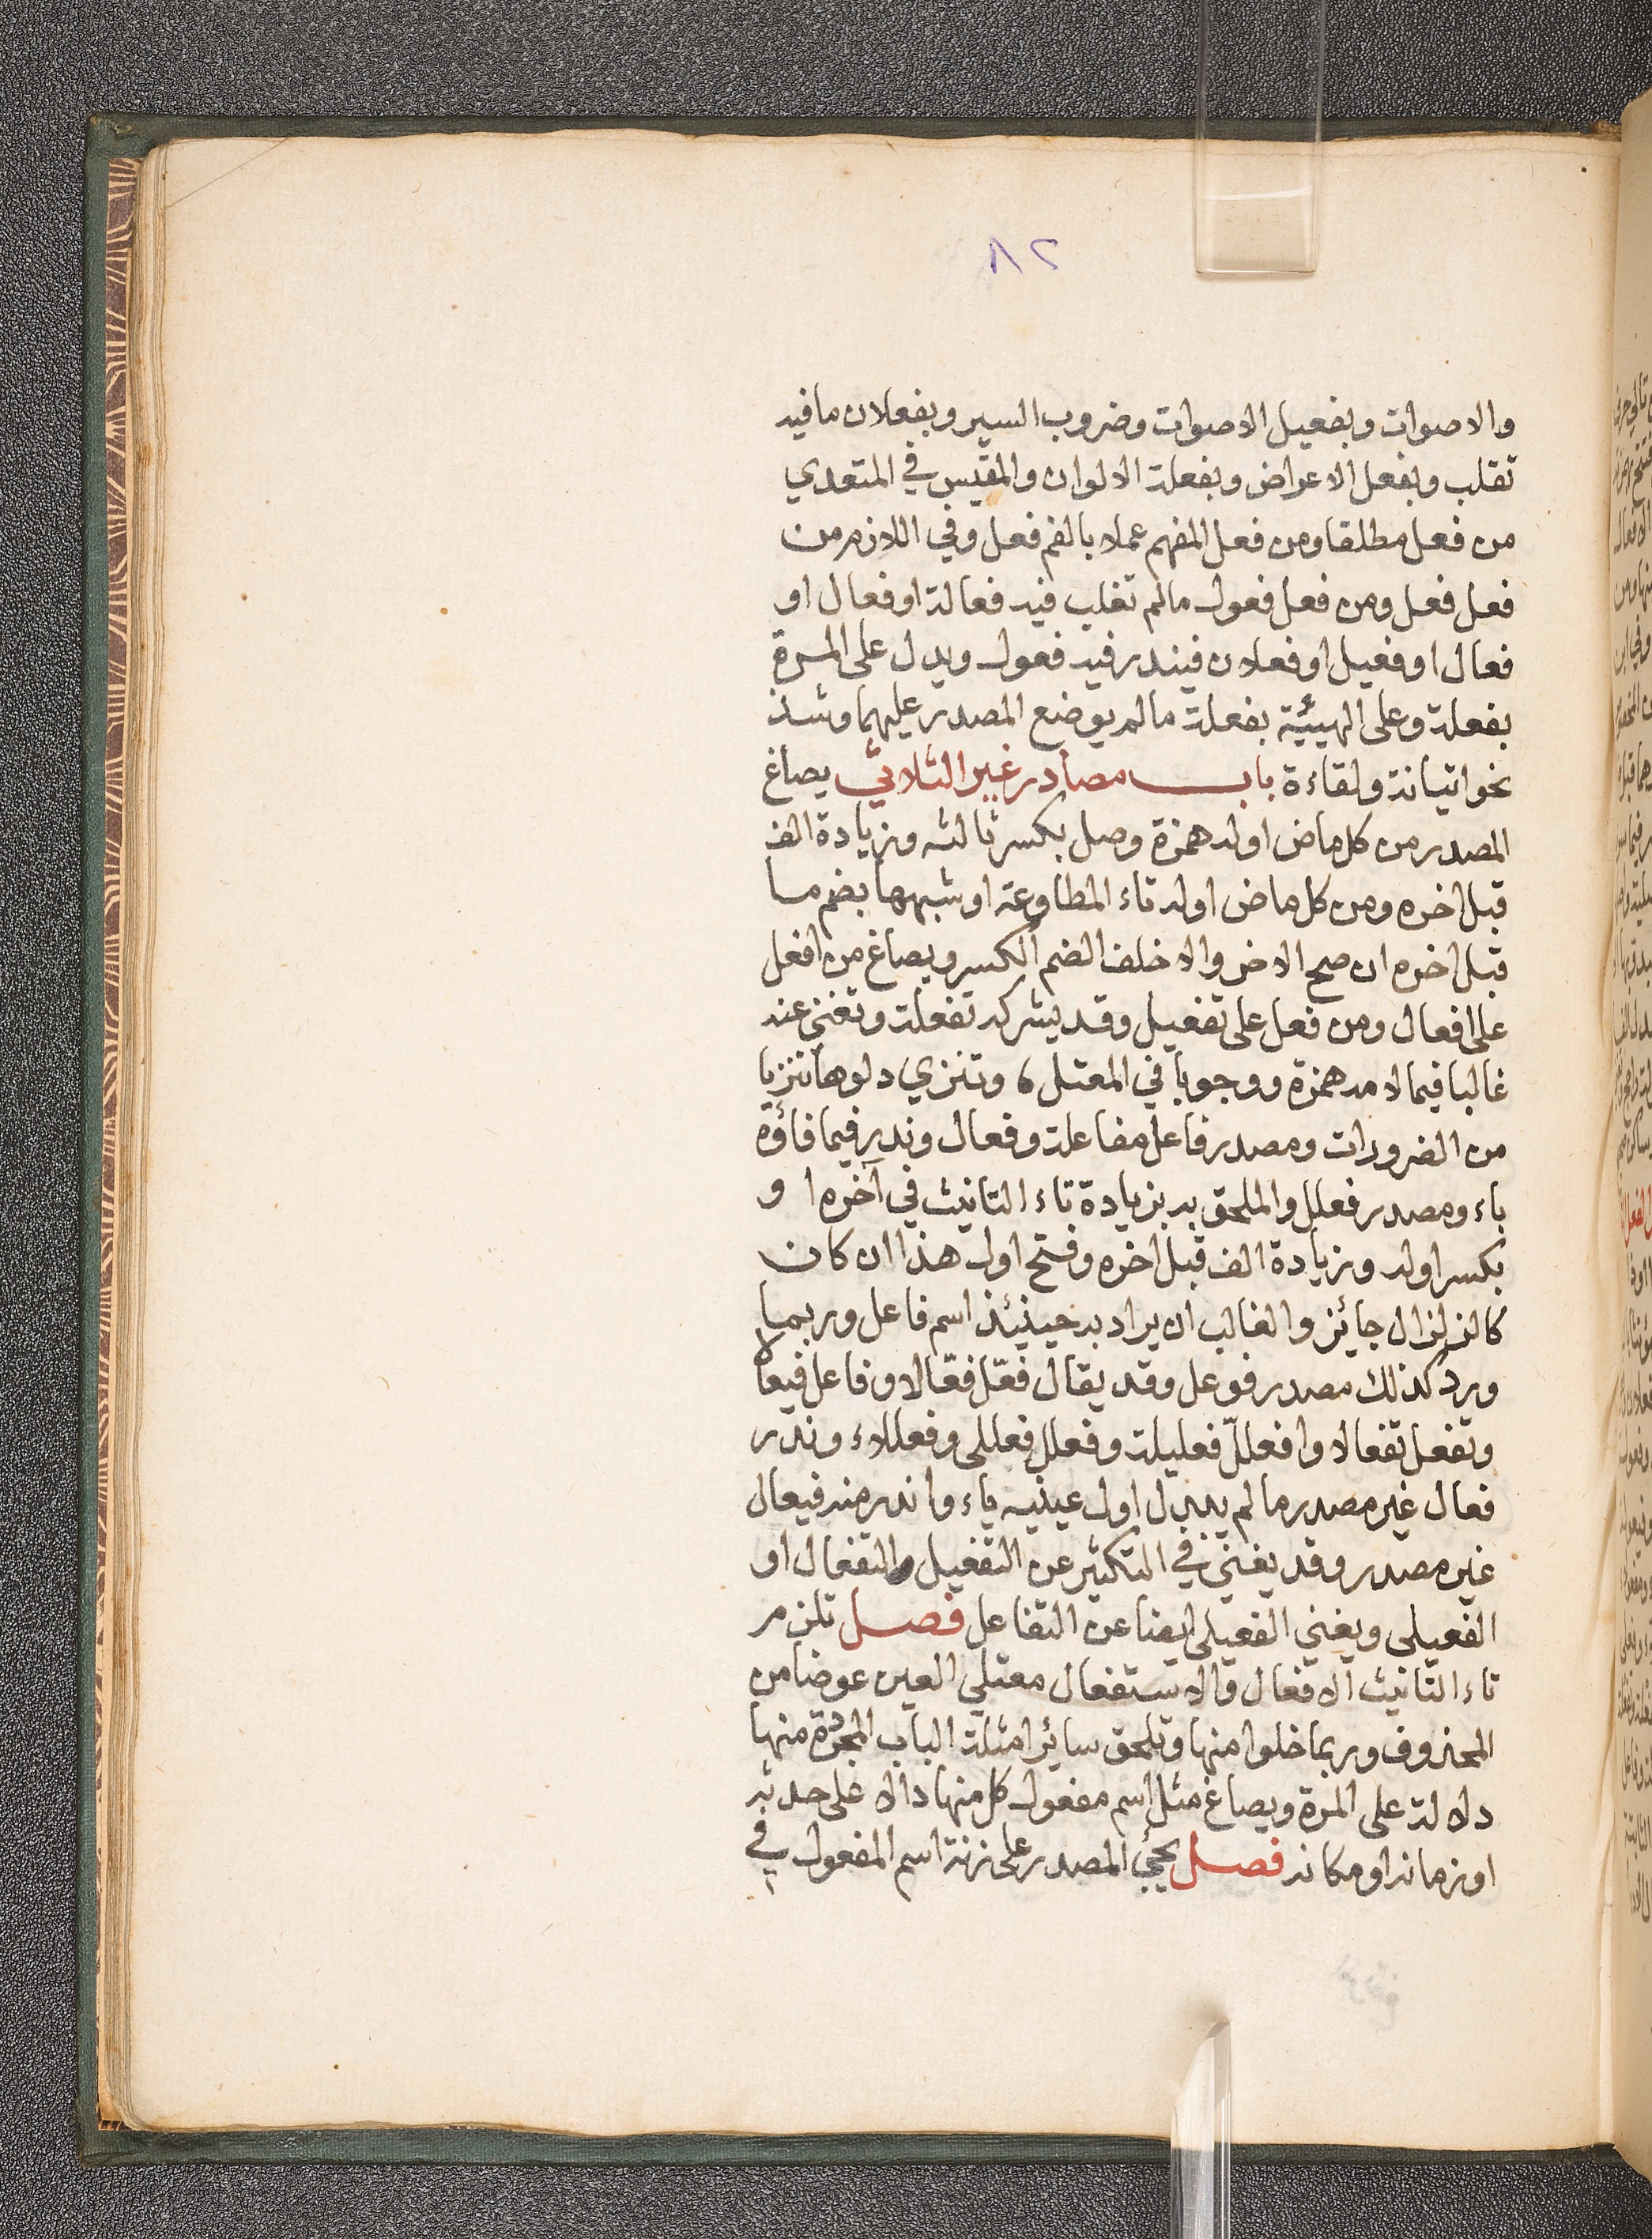 ٨٢
والاصوات وبفعيل الاصوات وضروب السير وبفعلان مافيه
تقلب وبفعل الاعراض وبفعلة الالوان والمقيس في المتعدي
من فعل مطلقا ومن فعل المفهم عملا بالفم فعل وفي اللازم من
فعل فعل ومن فعل فعول مالم تغلب فيه فعالة او فعال او
فعال او فعيل او فعلان فيندر فيه فعول ويدل على المرة
بفعلة وعلى الهيئية بفعلة مالم يوضع المصدر عليهما وشذ
نحو اتيانة ولقاءة باب مصادر غير الثلاثي يصاغ
المصدر من كل ماض اوله همزة وصل بكسر ثالثه وزيادة الف
قبل اخره ومن كل ماض اوله تاء المطاوعة او شبهها بضم ما
قبل اخره ان صح الاخر والا خلف الضم الكسر ويصاغ من افعل
على افعال ومن فعل على تفعيل وقد يشركه تفعلة وتغني عنه
غالبا فيما لامه همزة ووجوبا في المعتل ه وتنزي دلوها تنزيا
من الضرورات ومصدر فاعل مفاعلة وفعال وندر فيما فاؤه
ياء ومصدر فعلل والملحق به بزيادة تاء التانيث في آخره او
بكسر اوله وزيادة الف قبل اخره وفتح اول هذا ان كان
كالزلزال جائز والغالب ان يراد به حينئذ اسم فاعل وربما
ورد كذلك مصدر فوعل وقد يقال فعّل فعّالا وفاعل فيعالا
وتفعل تفعالا وافعللّ فعليلة وفعلل فعللى وفعللاء وندر
فعال غير مصدر مالم يبدل اول عينيه ياء واندر منه فيعال
غير مصدر وقد يغني في التكثير عن التفعيل التفعال او
الفعيلى ويغني الفعيلى ايضا عن التفاعل فصل تلزم
تاء التانيث الافعال والاستفعال معتلي العين عوضا من
المحذوف وربما خلوا منها وتلحق سائر امثلة الباب المجردة منها
دلالة على المرة ويصاغ مثل اسم مفعول كل منها دالا على حدثه
او زمانه او مكانه فصل يجئ المصدر على زنة اسم المفعول في